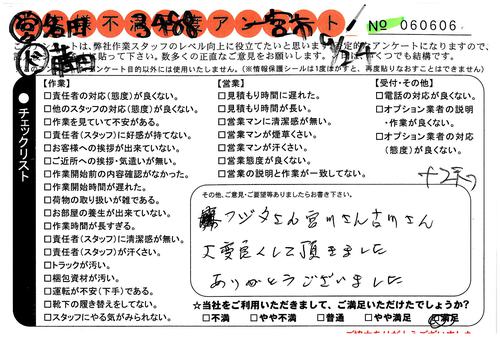 客様不満足度アンケート
No 060606
は、弊社作業スタッフのレベル向上に役立てたいと思います
アンケートになりますので、
貼って下さい。数多くの正直なご意見をお願いします。
くつでも結構です。
ンケート目的以外には使用いたしません。(※情報保護シールは1度はがすと、再度貼りなおすことはできません)
●チェックリスト
【作業】
□責任者の対応(態度)が良くない。
□他のスタッフの対応(態度)が良くない。
□作業を見ていて不安がある。
□責任者(スタッフ)に好感が持てない。
□お客様への挨拶が出来ていない。
□ご近所への挨拶・気遣いが無い。
□作業開始前の内容確認がなかった。
□作業開始時間が遅れた。
□荷物の取り扱いが雑である。
□お部屋の養生が出来ていない。
□作業時間が長すぎる。
□責任者(スタッフ)に清潔感が無い。
□責任者(スタッフ)が汗くさい。
□トラックが汚い。
□梱包資材が汚い。
□運転が不安(下手)である。
□靴下の履き替えをしてない。
□スタッフにやる気がみられない。
【営業】
□見積もり時間に遅れた。
□見積もり時間が長い。
□営業マンに清潔感が無い。
□営業マンが煙草くさい。
□営業マンが汗くさい。
□営業態度が良くない。
□営業の説明と作業が一致してない。
【受付・その他】
□電話の対応が良くない。
□オプション業者の説明
・作業が良くない。
□オプション業者の対応
(態度)が良くない。
その他、ご意見・ご要望等ありましたらお書き下さい。
フジタさん宮川さん吉川さん
大変良くして頂きました
ありがとうございました
☆当社をご利用いただきまして、ご満足いただけたでしょうか?
□不満 □やや不満 □普通 □やや満足 □満足